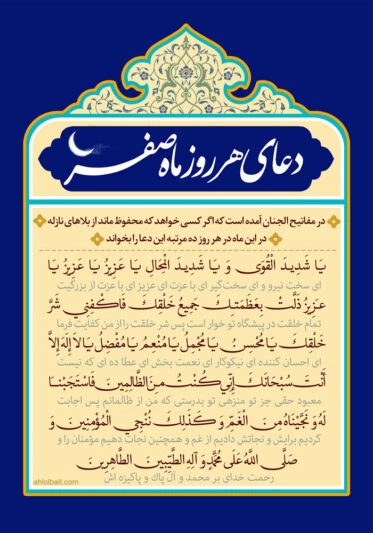 دعای هر روز ماه صفر
در مفاتیح الجنان آمده است که اگر کسی خواهد که محفوظ ماند از بلاهای نازله
در این ماه در هر روز ده مرتبه این دعا را بخواند
يَا شَدِيدَ الْقُوَىٰ وَ يَا شَدِيدَ الْمِحَالِ يَا عَزِيزُ يَا عَزِيزُ يَا
ای سخت نیرو و ای سخت‌گیر ای با عزت ای عزیز ای با عزت از بزرگیت
عَزِيزُ ذَلَّتْ بِعَظَمَتِكَ جَمِيعُ خَلْقِكَ فَاكْفِنِي شَرَّ
تمام خلقت در پیشگاه تو خوار است پس شر خلقت را از من کفایت فرما
خَلْقِكَ يَا مُحْسِنُ يَا مُجْمِلُ يَا مُنْعِمُ يَا مُفْضِلُ يَا لَا إِلَهَ إِلَّا
ای احسان کننده ای نیکوکار ای نعمت بخش ای عطا ده ای که نیست
أَنْتَ سُبْحَانَكَ إِنِّي كُنْتُ مِنَ الظَّالِمِينَ فَاسْتَجَبْنَا
معبود حقی جز تو منزهی تو بدرستی که من از ظالمانم پس اجابت
لَهُ وَ نَجَّيْنَاهُ مِنَ الْغَمِّ وَ كَذَلِكَ نُنْجِي الْمُؤْمِنِينَ وَ
کردیم برایش و نجاتش دادیم از غم و همچنین نجات دهیم مؤمنان را و
صَلَّى اللَّهُ عَلَى مُحَمَّدٍ وَ آلِهِ الطَّيِّبِينَ الطَّاهِرِينَ
رحمت خدای بر محمد و آل پاک و پاکیزه اش
ahlolbait.com